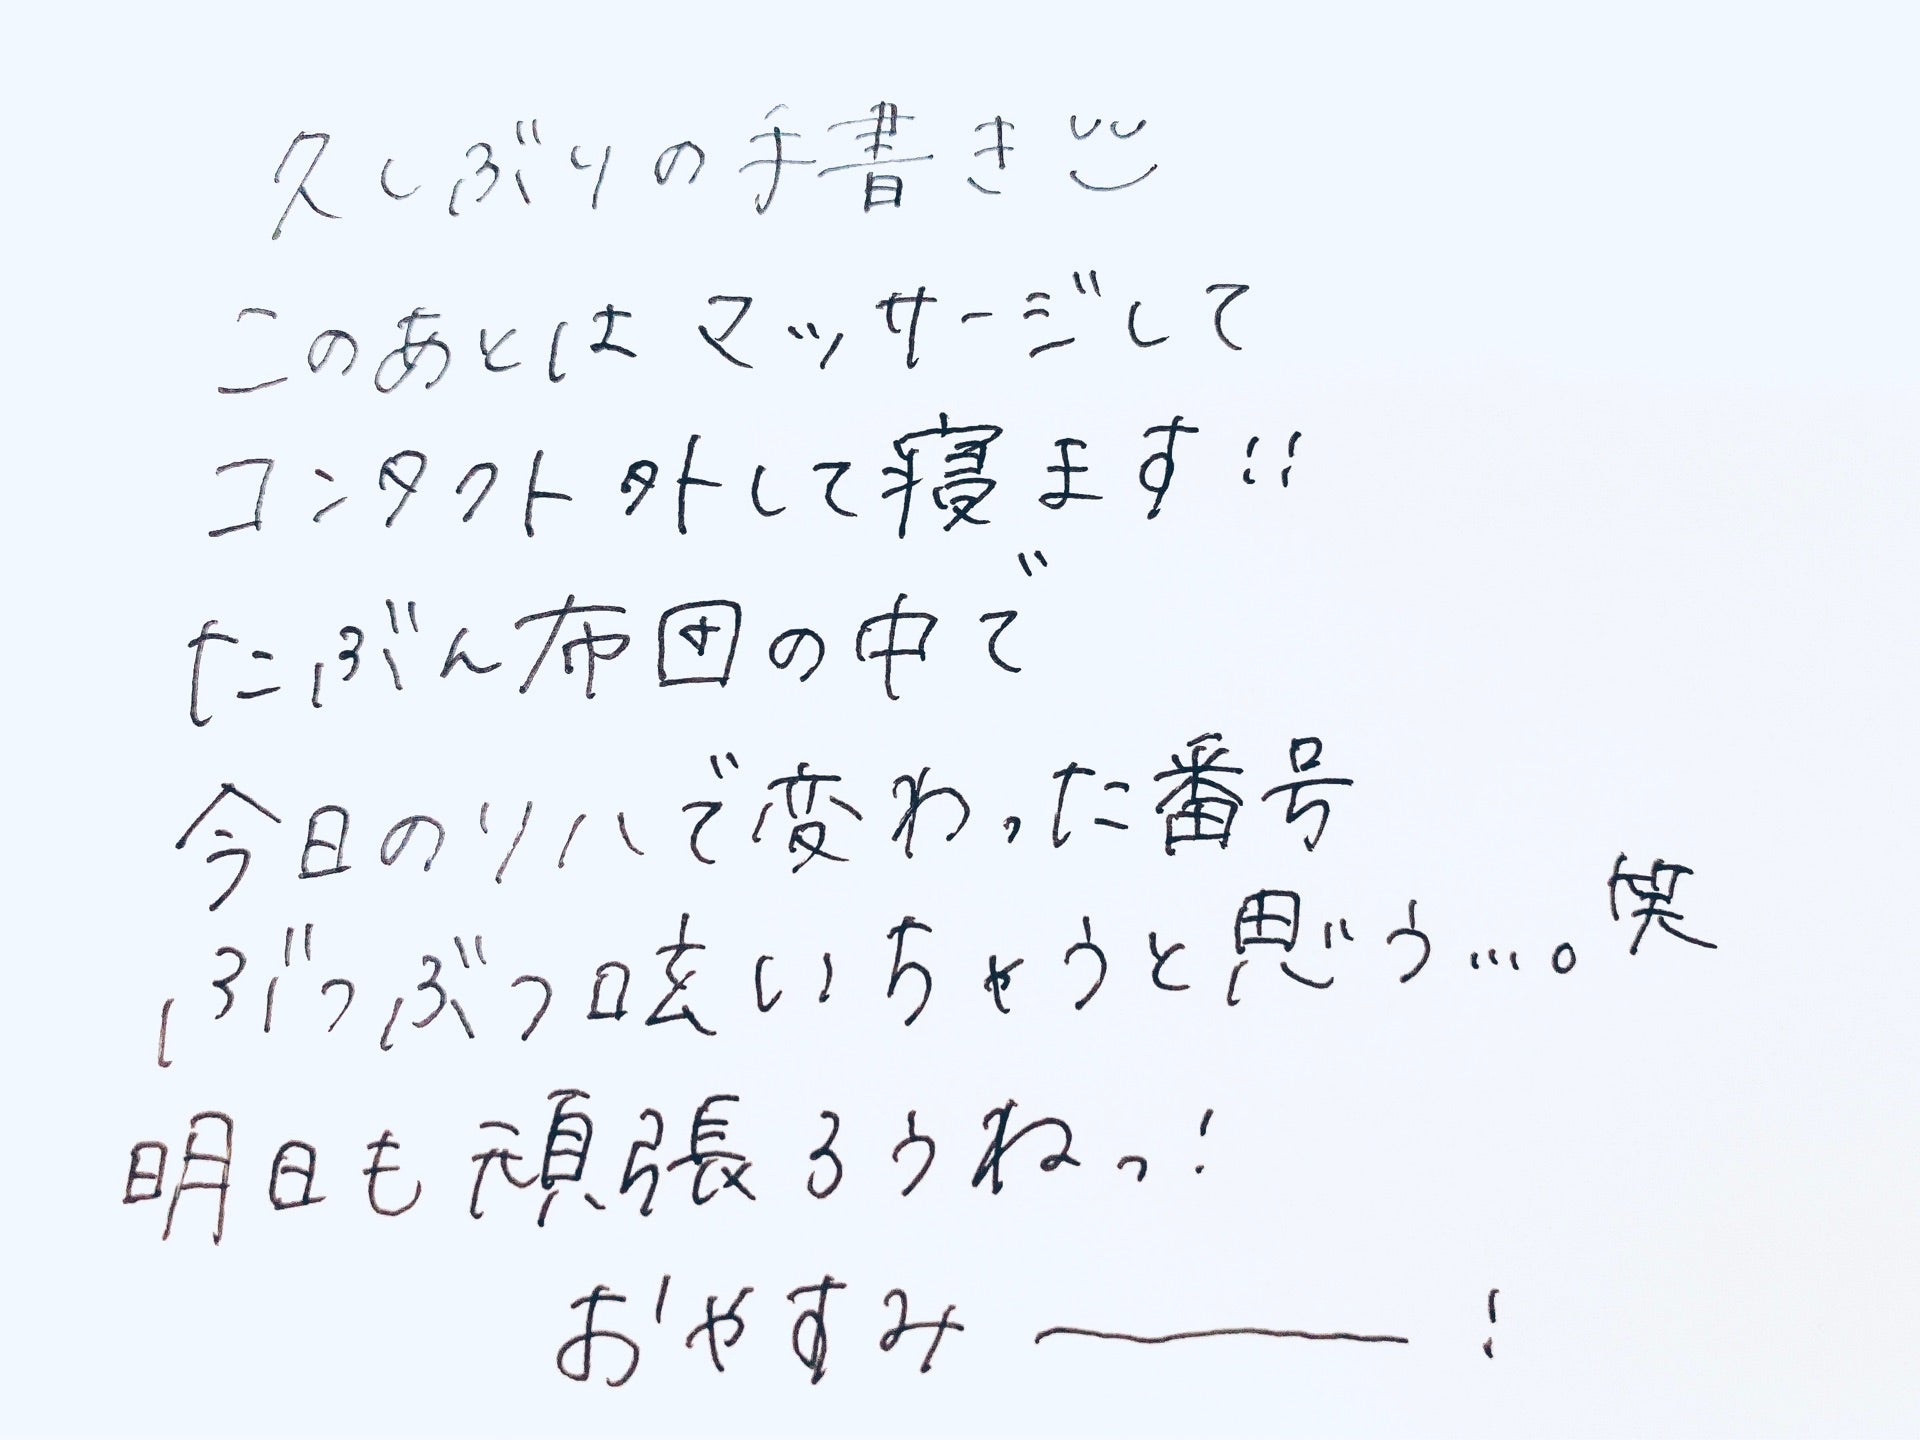 久しぶりの手書き
このあとはマッサージして
コンタクト外して寝ます!!
たぶん布団の中で
今日のリハで変わった番号
ぶつぶつ呟いちゃうと思う…。笑
明日も頑張ろうねっ!
おやすみー!